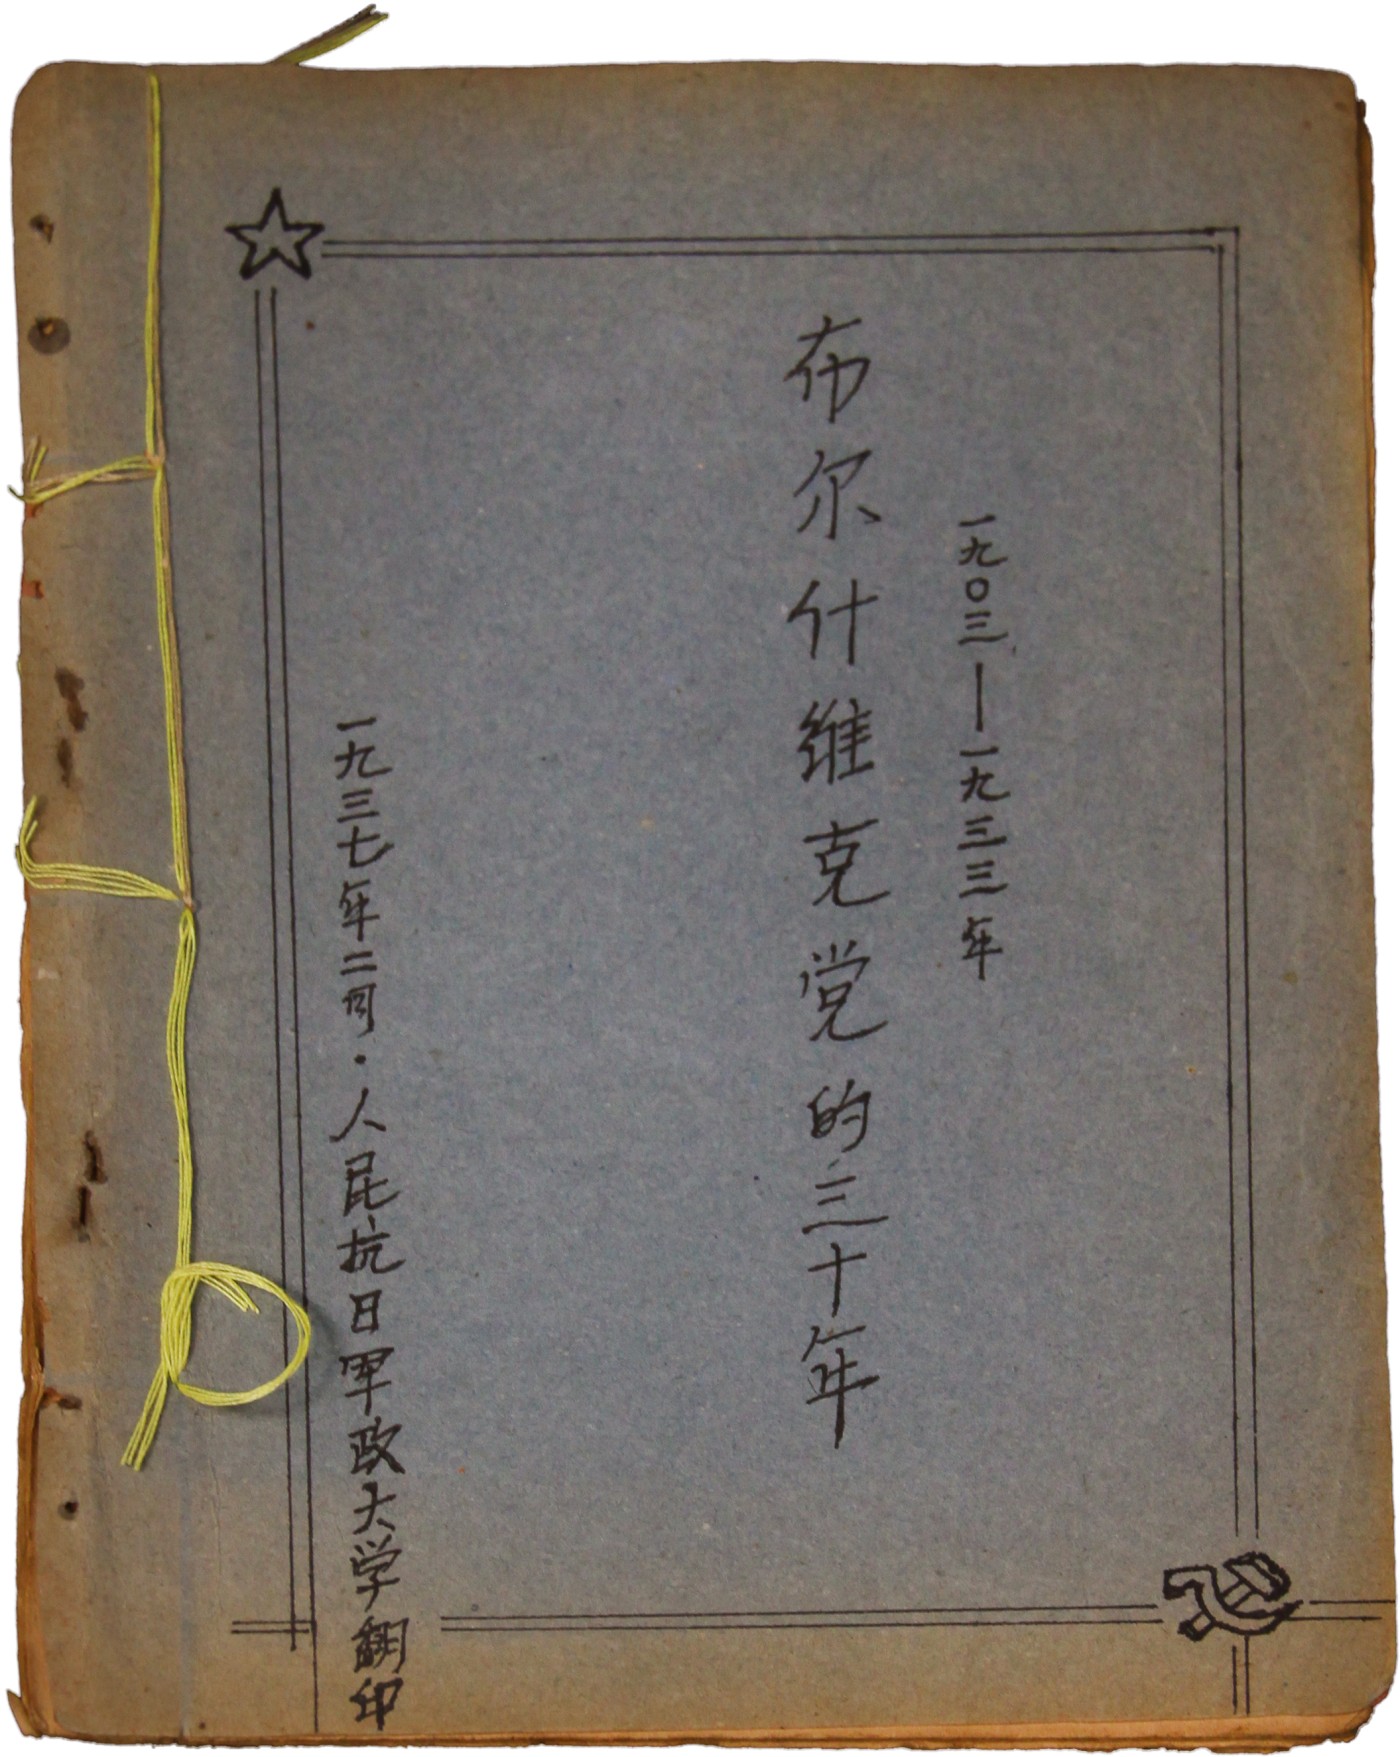 一九〇三——一九三三年
布尔什维克党的三十年
一九三七年二月·人民抗日军政大学翻印